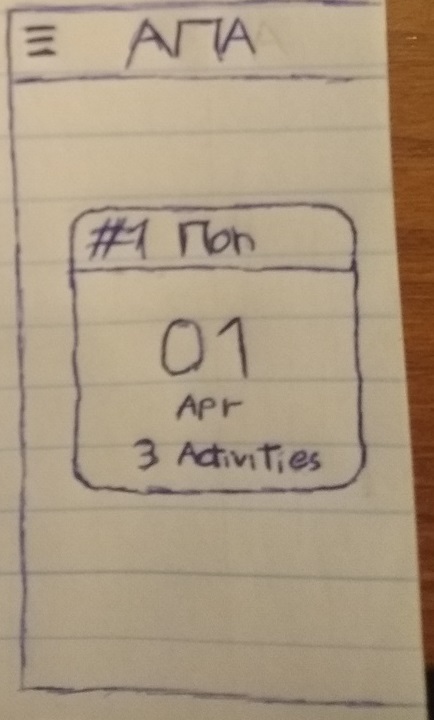 АПА
#1 Mon
01
Apr
3 Activities